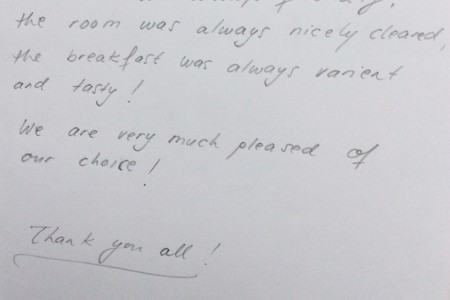 the room was always nicely cleaned,
the breakfast was always varient
and tasty!
We are very much pleased of
our choice!
Thank you all!